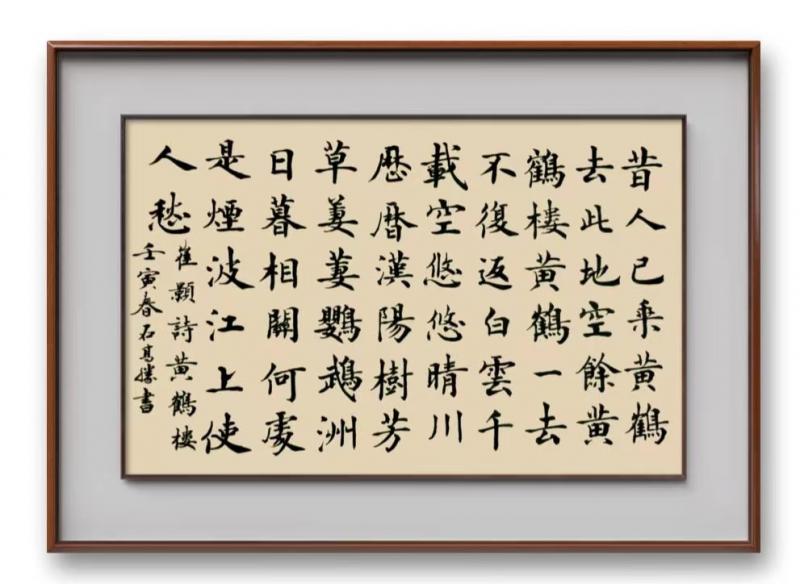 昔人已乘黄鶴
去此地空餘黄
鶴楼黄鶴一去
不復返白雲千
載空悠悠晴川
歴暦漢陽樹芳
草萋萋鸚鵡洲
日暮相關何處
是煙波江上使
人愁
崔顥詩黄鶴楼
壬寅春石髙勝書